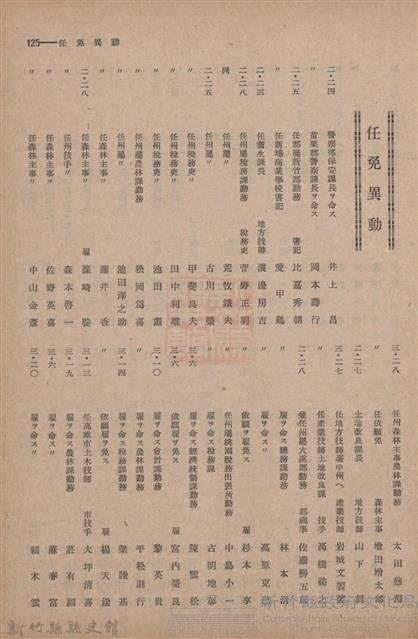 125 — 動異免任
任免異動
二・二四 警察部保安課長ヲ命ス 井上昌
〃 苗栗郡警察課長ヲ命ス 岡本壽行
二・二五 任郡屬新竹郡勤務 書記 比嘉秀朝
〃 任新埔商業學校書記 愛甲鶏
二・二三 任衞生課長 地方技師 渡邊房吉
二・二八 任州屬稅務課勤務 稅務吏 菅野正明
同 任州屬 〃 荒牧鐵夫
二・二五 任州屬 〃 古川榮
〃 任州稅務吏 〃 甲斐良夫
〃 任州稅務吏 〃 田中利雄
〃 任州稅務吏 池田薰
〃 任州屬農林課勤務 松岡篤喜
〃 任州屬 〃 池田澤之助
〃 任州屬 〃 藤井香
二・二八 任州技手 雇 篠崎
〃 任森林主事 〃 森本啓一
〃 任森林主事 〃 佐野英喜
〃 任森林主事 〃 中山金
三・二八 〃 太田慈
〃 依願免 森林主事 增田增太郎
二・二 土地改良課長 地方技師 山下
三・二七 任地方技師臺中州へ 產業技師 岩城文
〃 任產業技師土地改良課 技手 高橋祐
二・二八 兼任州屬大溪郡勤務 郡視學 佐藤勝五郎
〃 雇ヲ命ス總務課勤務 林本清
〃 雇ヲ命ス 〃 高原克
〃 依願ヲ雇免ス 雇 杉本亨
〃 任州屬桃園稅務出張所勤務 中島小一
〃 雇ヲ命ス稅務課 古明地彰
三・六 雇ヲ命ス經濟統制課勤務 陳雲松
三・六 依願雇ヲ免ス 雇 宮內榮良
〃 雇ヲ命ス會計課勤務 黎英貴
〃 雇ヲ命ス農林課勤務 平松剛行
三・一四 雇ヲ命ス稅務課勤務 榮陸基
〃 依願雇ヲ免ス 雇 楊天送
三・一三 任高雄市土木技師 市技手 大坪清喜
三・一九 雇ヲ命ス農林課勤務 莊有福
三・六 雇ヲ命ス 〃 蘇春富
三・二〇 雇ヲ命ス 〃 賴木雲
新竹縣縣史館
新竹縣政府文化局